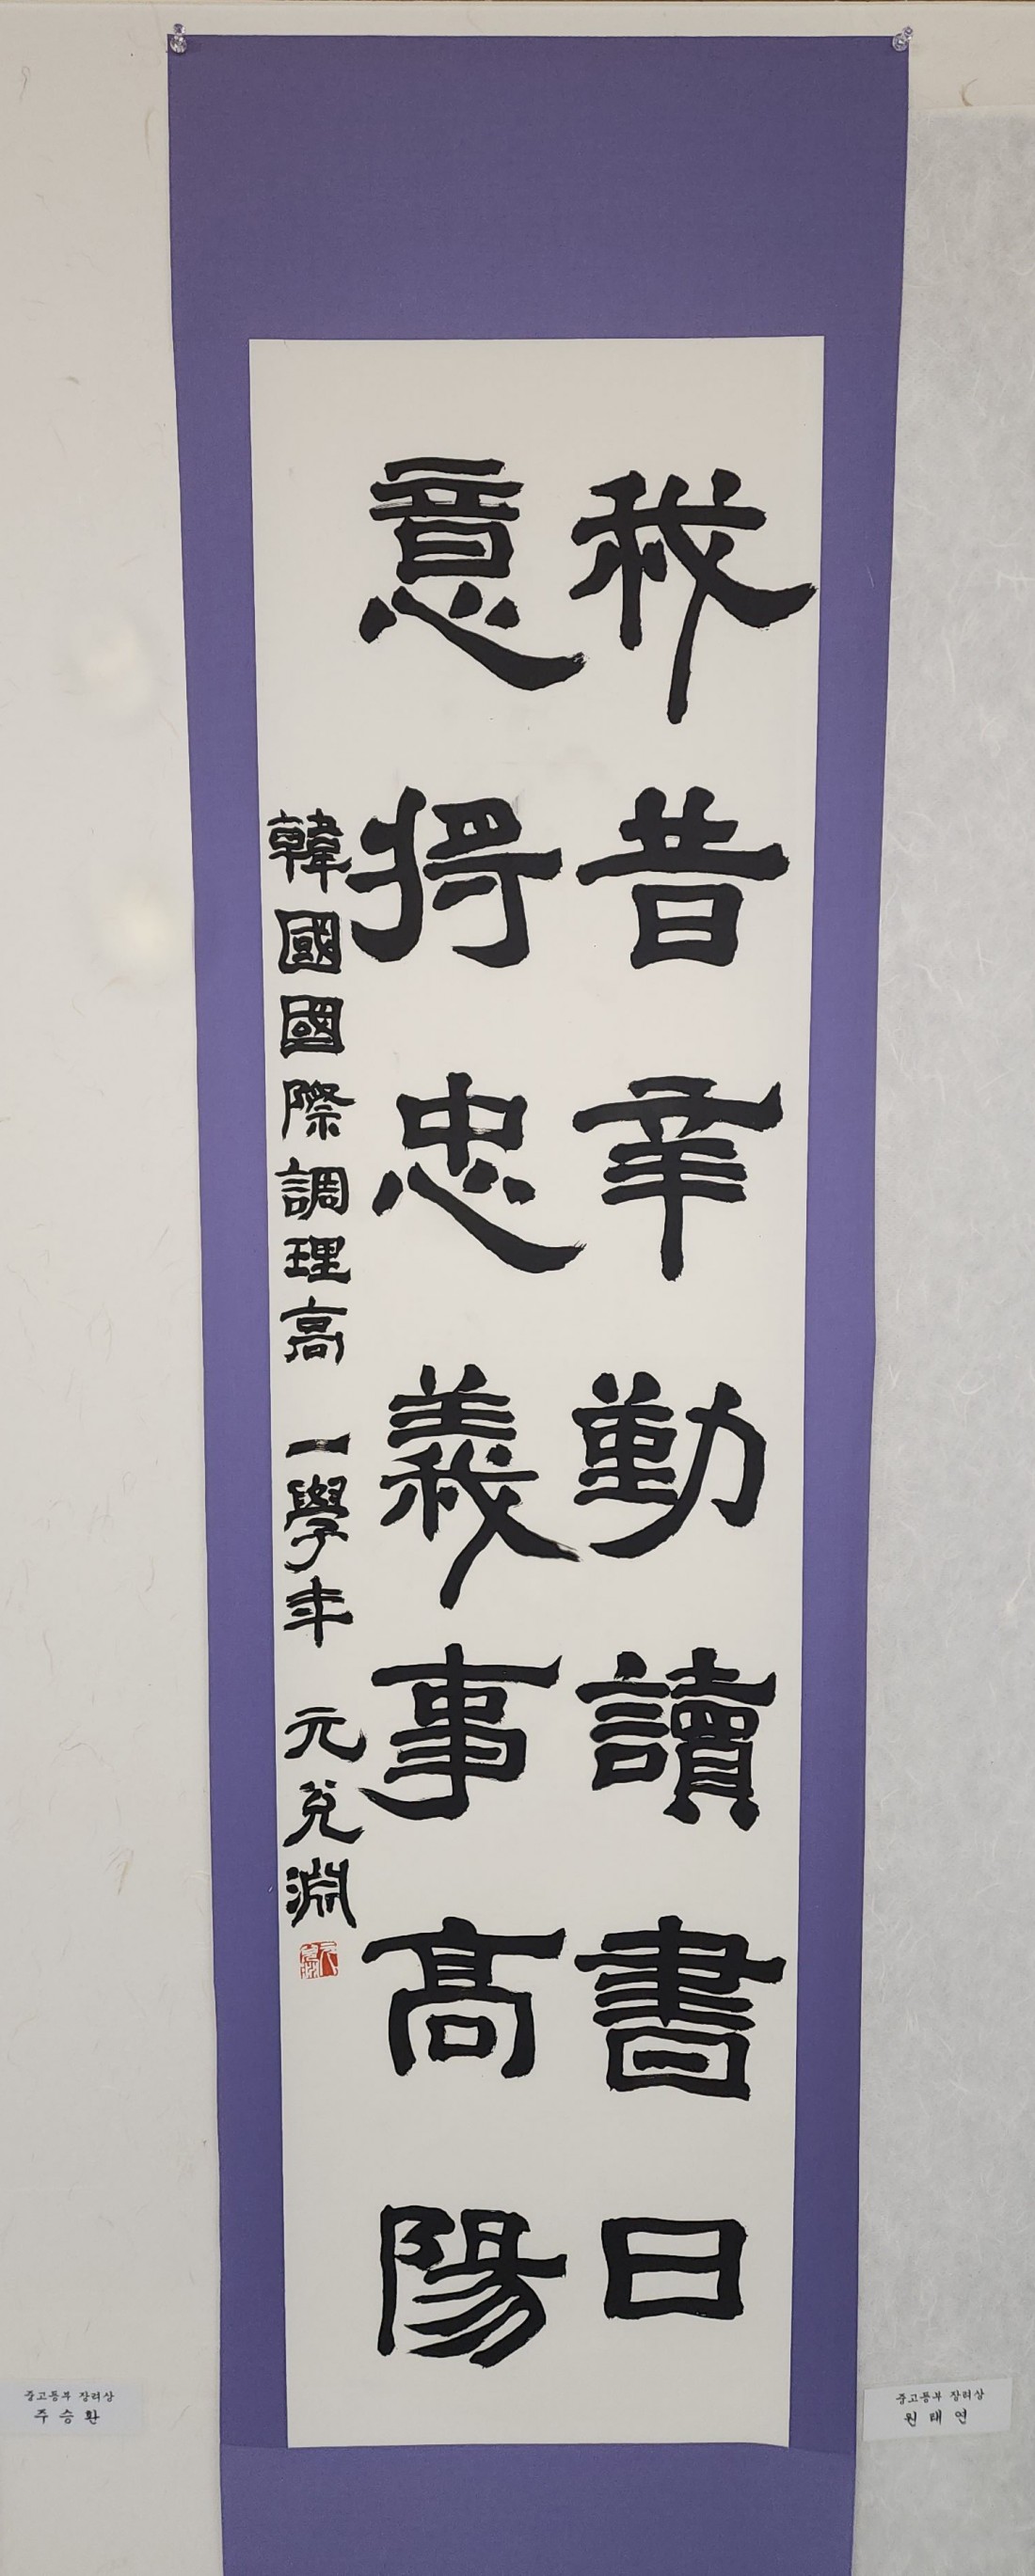 我昔辛勤讀書日
意將忠義事高陽
韓國國際調理高 一學年 元兌淵
중고등부 장려상
주 승 환
중고등부 장려상
원 태 연